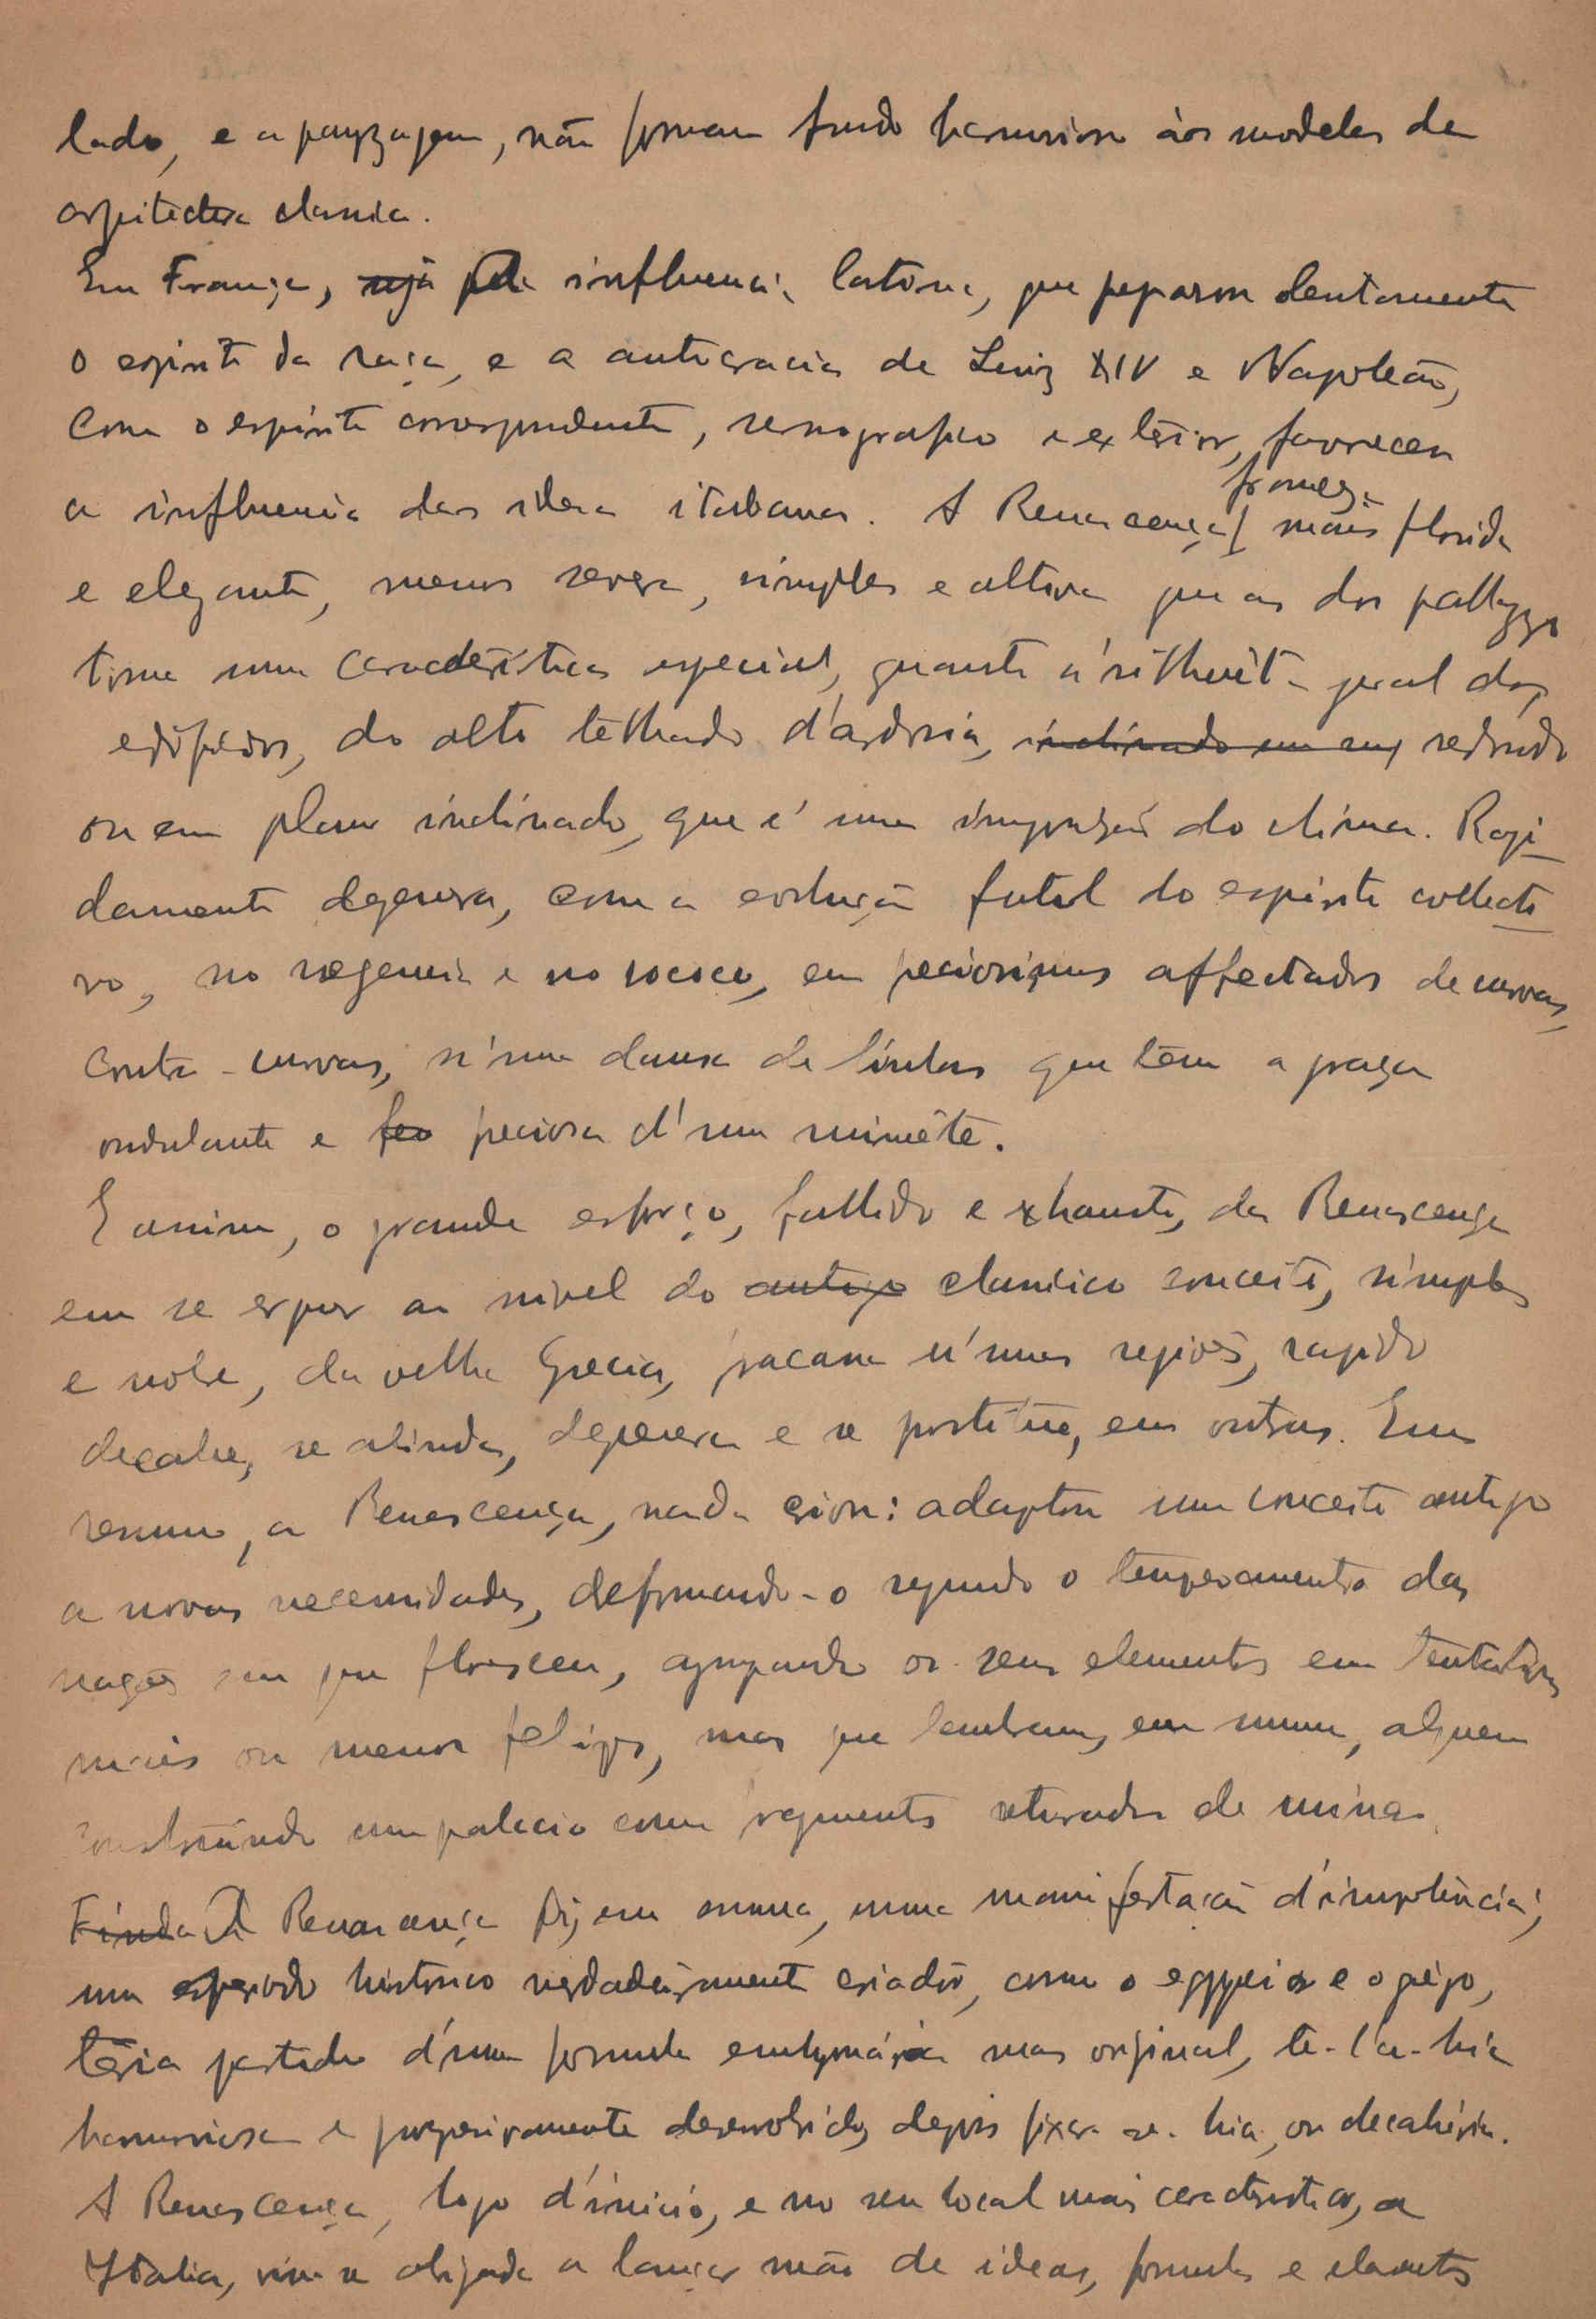 lado, e a payzagem, não formam fundo harmonioso aos modelos da
arquitectura classica.
Em França, já pela influencia latina, que preparou lentamente
o espirito da raça, e a autocracia de Luiz XIV e Napoleão,
com o espirito correspondente, scenografico e exterior, favorecem
a influencia das ideas italianas. A Renascença franceza mais florida
e elegante, menos severa, simples e altiva que as dos pallazzi
toma uma caracteristica especial, quanto á silhuêta geral dos
edificios, do alto telhado d'ardosia, inclinado em redondo
ou em plano inclinado, que é uma imposição do clima. Rapi-
damente degenera, com a evolução fatal do espirito collecti-
vo, no regencia e no rococo, em preciosismos affectados de curvas,
contra-curvas, n'uma dansa de linhas que têm a graça
ondulante e preciosa d'um minuête.
E assim, o grande esforço, fallido e exhausto, da Renascença
em se erguer ao nivel do antigo classico conceito, simples
e nobre, da velha Grecia, fracassa n'umas regiões, rapido
decahe, se alinda, degenera e se prostitue, em outras. Em
resumo, a Renascença, nada criou: adaptou um conceito antigo
a novas necessidades, deformando-o segundo o temperamento das
nações em que floresceu, agrupando os seus elementos em tentativas
mais ou menos felizes, mas que lembram, em summa, alguem
construindo um palacio com segmentos retirados de ruinas.
Finda A Renascença foi, em summa, uma manifestação d'impotência;
um periodo historico verdadeiramente criador, como o egypcio e o grego,
teria partido d'uma formula embryonária mas original, te-l'a-hia
harmoniosa e progressivamente desenvolvido, depois fixar-se-hia, ou decahiria.
A Renascença, logo d'inicio, e no seu local mais caracteristico, a
Italia, viu-se obrigada a lançar mão de ideas, formulas e elementos